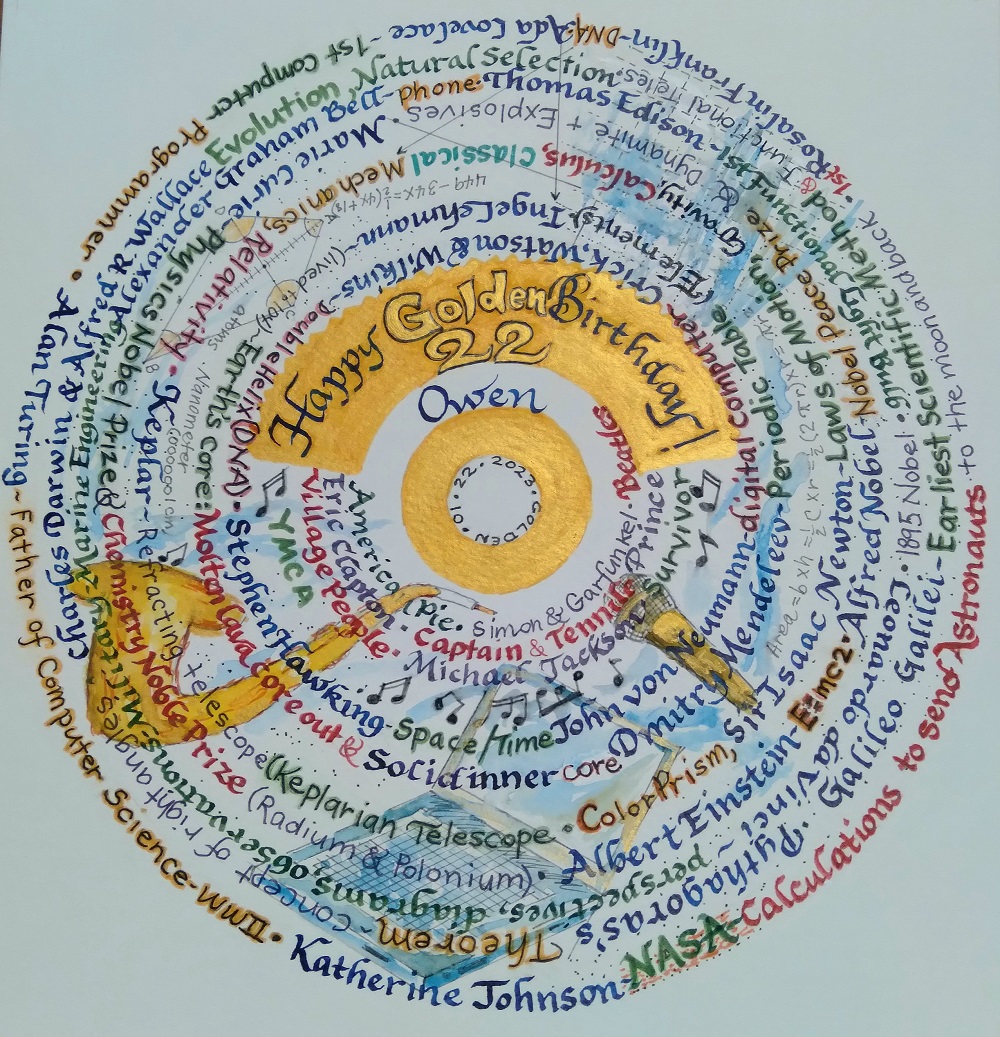 Happy Golden Birthday!
22
Owen
01.22.2023. GOLDEN
America Pie.
Eric Clapton.
Village people.
YMCA
Simon & Garfunkel. Beatles
Captain & Tennille Prince
Michael Jackson Survivor
Crick, Watson & Wilkins-Double Helix (DNA). Stephen Hawking-Space/Time
John von Neumann-digital computer
Inge Lehmann-(lived to 104)-Earth's core: Molten lava core out & Solid inner core
Dmitry Mendeleev-Periodic Table (Elements).
Keplar-Refracting telescope (Keplarian Telescope.
Color Prism, Sir Isaac Newton-Laws of Motion, Gravity, Calculus, Classical Mechanics, Relativity.
Marie Curie-Physics Nobel Prize & Chemistry Noble Prize (Radium & Polonium).
Albert Einstein-E=mc2.
Alfred Nobel Nobel Peace Prize & Dynamite + Explosives.
Alexander Graham Bell-phone.
Thomas Edison-1st Functional Lightbulb.
1895 Nobel.
Leonardo da Vinci-perspectives, diagrams, observations-
Marine Engineering
Charles Darwin & Alfred R Wallace Evolution, Natural Selection.
1st & Functional Teles.
Pythagoras's Theorem-concept of right angles
Galileo Galilei-Earliest Scientific Method.
Rosalin Franklin-DNA.
Ada Lovelace-1st Computer Programmer.
Alan Turing~Father of Computer Science-WWII.
Katherine Johnson-NASA-Calculations to send Astronauts to the moon and back
Nanometer
atoms